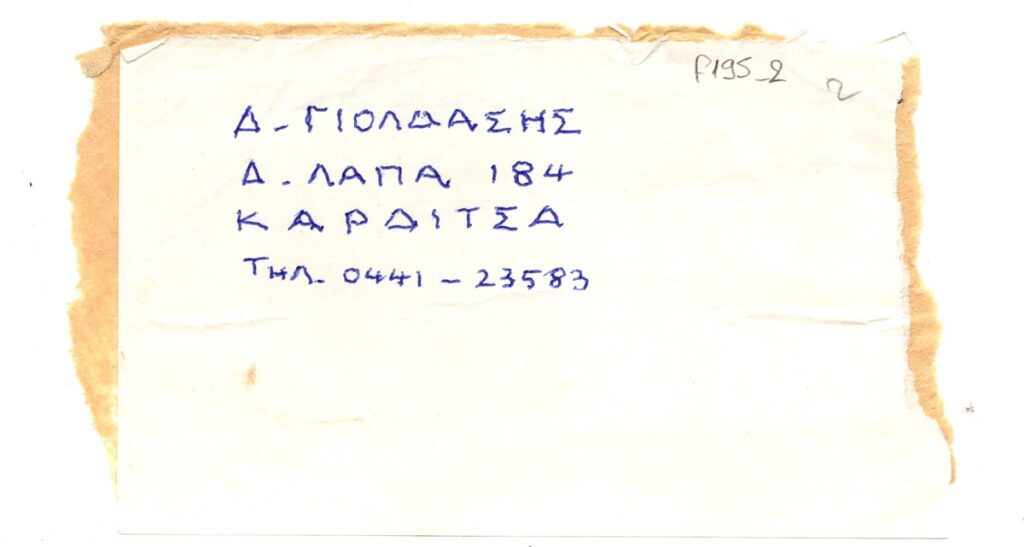 f195_2 2
Δ. ΓΙΟΛΔΑΣΗΣ
Δ. ΛΑΠΑ 184
ΚΑΡΔΙΤΣΑ
ΤΗΛ. 0441 - 23583